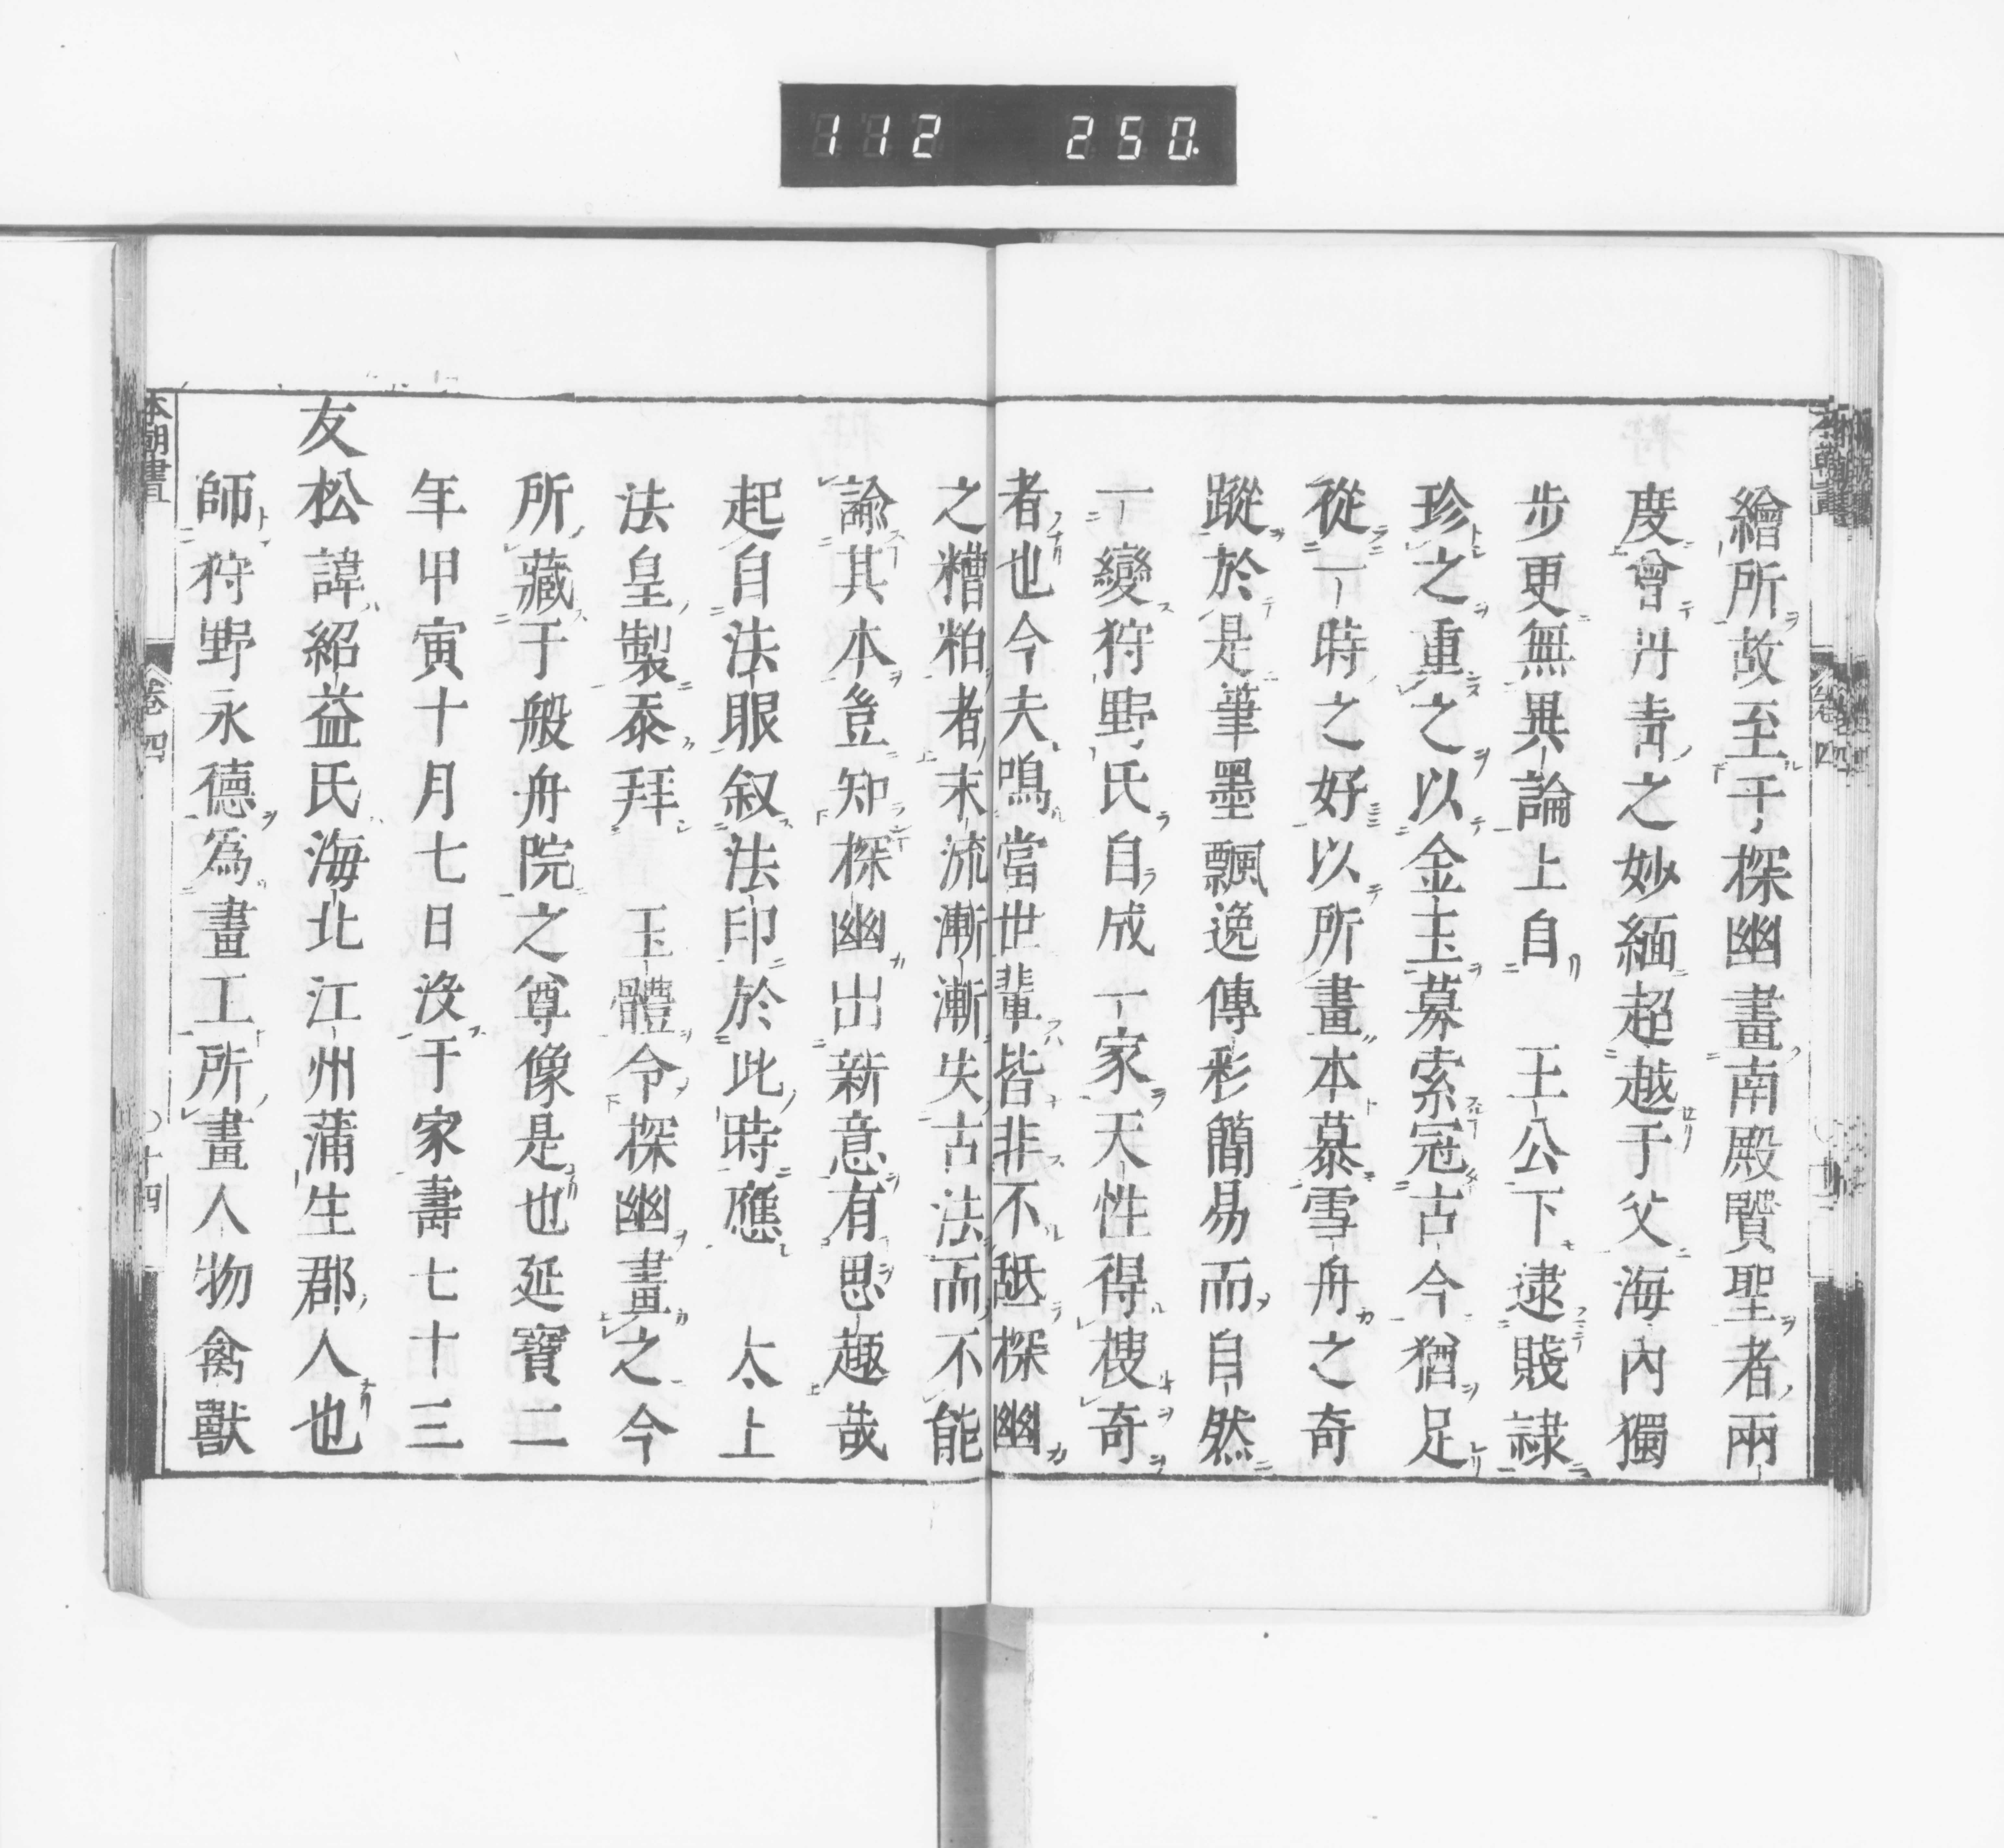 112 250
繪所故至于探幽畫南殿賢聖者兩
度曾丹青之妙緬超越于父海內獨
步更無異論上自 王公下逮賤隷
珍之重之以金玉募索冠古今猶足
從一時之好以所畫本慕雪舟之奇
蹤於是筆墨飄逸傳彩簡易而自然
一變狩野氏自成一家天性得模奇
者也今夫鳴當世輩皆非不舐探幽
之糟粕者末流漸漸失古法而不能
諭其本豈知探幽出新意有思趣哉
起自法眼叙法印於此時應 太上
法皇製泰拜 玉體令探幽畫之今
所藏于般舟院之尊像是也延寶二
年甲寅十月七日沒于家壽七十三
友松諱紹益氏海北江州蒲生郡人也
師狩野永德為畫工所畫人物禽獸
本朝畫
卷四
十四